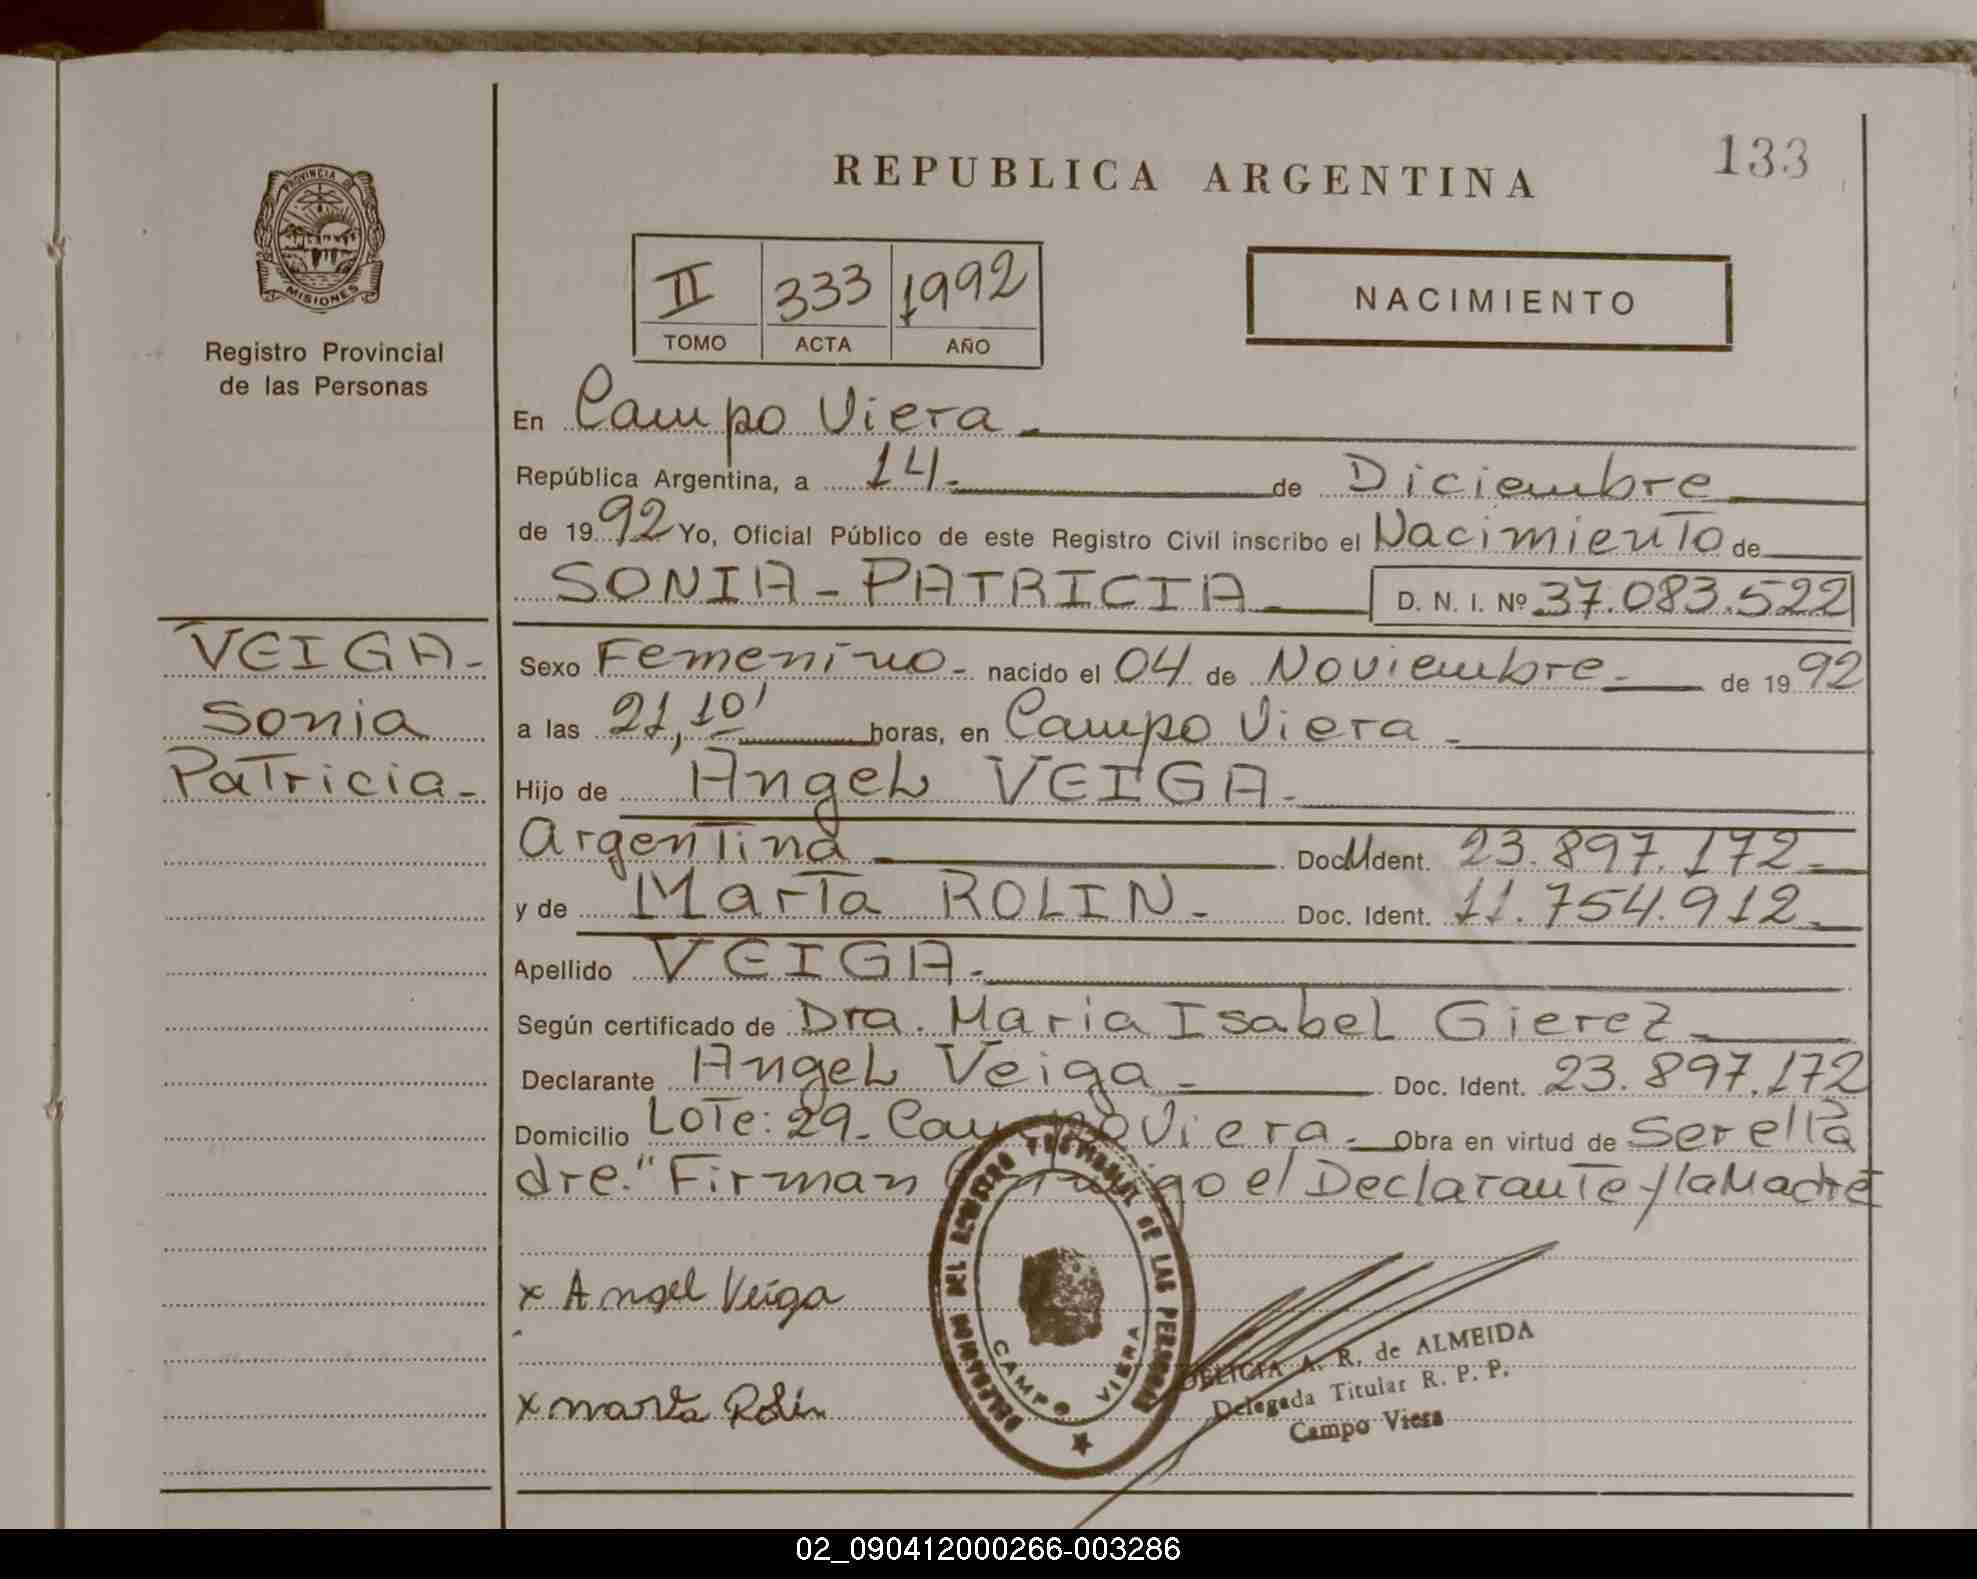 133
REPUBLICA ARGENTINA
PROVINCIA DE
MISIONES
Registro Provincial
de las Personas
II 333 1992
TOMO ACTA AÑO
NACIMIENTO
En Campo Viera -
República Argentina, a 14 - de Diciembre
de 1992 Yo, Oficial Público de este Registro Civil inscribo el Nacimiento de
SONIA - PATRICIA - D. N. I. Nº 37.083.522
VEIGA -
Sonia
Patricia -
Sexo Femenino - nacido el 04 de Noviembre - de 1992
a las 21,10' horas, en Campo Viera -
Hijo de Angel VEIGA -
Argentina Doc. Ident. 23.897.172 -
y de Marta ROLIN - Doc. Ident. 11.754.912 -
Apellido VEIGA -
Según certificado de Dra. Maria Isabel Gierez -
Declarante Angel Veiga - Doc. Ident. 23.897.172
Domicilio Lote: 29 - Campo Viera - Obra en virtud de Ser el Pa
dre." Firman Conmigo el Declarante y la Madre
x Angel Veiga
x marta Rolin
DELEGACION DEL REGISTRO PROVINCIAL DE LAS PERSONAS
CAMPO VIERA
DELICIA A. R. de ALMEIDA
Delegada Titular R. P. P.
Campo Viera
02_090412000266-003286